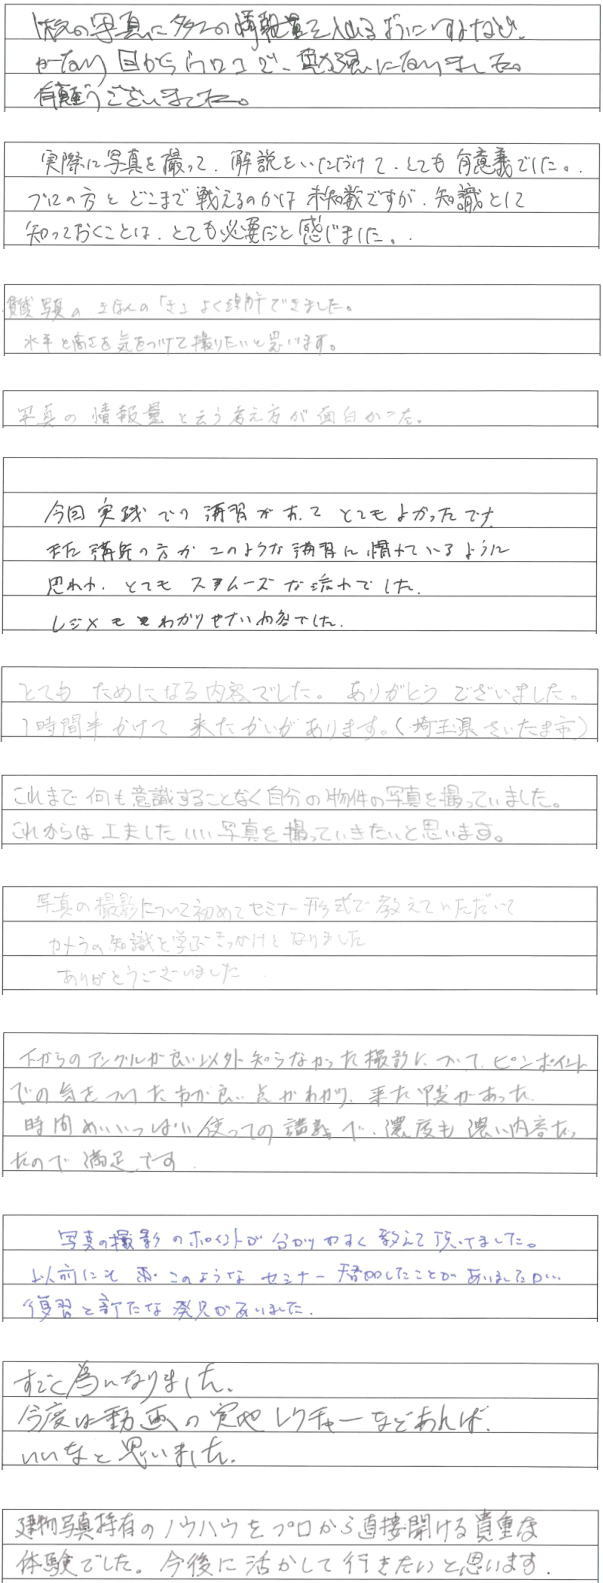 1枚の写真に多くの情報量を入れるようにするなど、
かなり目からウロコで、勉強になりました。
有難うございました。
実際に写真を撮って、解説をいただけて、とても有意義でした。
プロの方とどこまで戦えるのかは未知数ですが、知識として
知っておくことは、とても必要だと感じました。
写真のきほんの「き」よく理解できました。
水平と高さを気をつけて撮りたいと思います。
写真の情報量と云う考え方が面白かった。
今回実践での講習があってとてもよかったです
また講師の方がこのような講習に慣れているように
思われ、とてもスムーズな流れでした。
レジメもわかりやすい内容でした。
とてもためになる内容でした。ありがとうございました。
1時間半かけて来たかいがあります。(埼玉県さいたま市)
これまで何も意識することなく自分の物件の写真を撮っていました。
これからは工夫したいい写真を撮っていきたいと思います。
写真の撮影について初めてセミナー形式で教えていただいて
カメラの知識を学ぶきっかけとなりました
ありがとうございました
下からのアングルが良い以外知らなかった撮影について、ピンポイント
での気をつけた方が良い点がわかり、来た甲斐があった。
時間めいいっぱい使っての講義で、濃度も濃い内容だっ
たので満足です
写真の撮影のポイントが分かりやすく教えて頂けました。
以前にもこのようなセミナー参加したことがありましたが…
復習と新たな発見がありました。
すごく為になりました。
今度は動画の実地レクチャーなどあれば、
いいなと思いました。
建物写真特有のノウハウをプロから直接聞ける貴重な
体験でした。今後に活かして行きたいと思います.